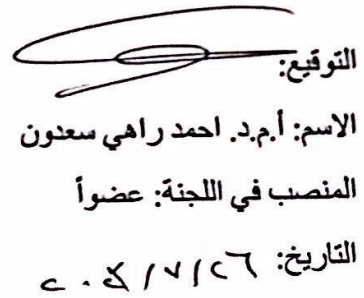 التوقيع:
الاسم: أ.م.د. احمد راهي سعدون
المنصب في اللجنة: عضواً
التاريخ: ٢٦ / ٧ /